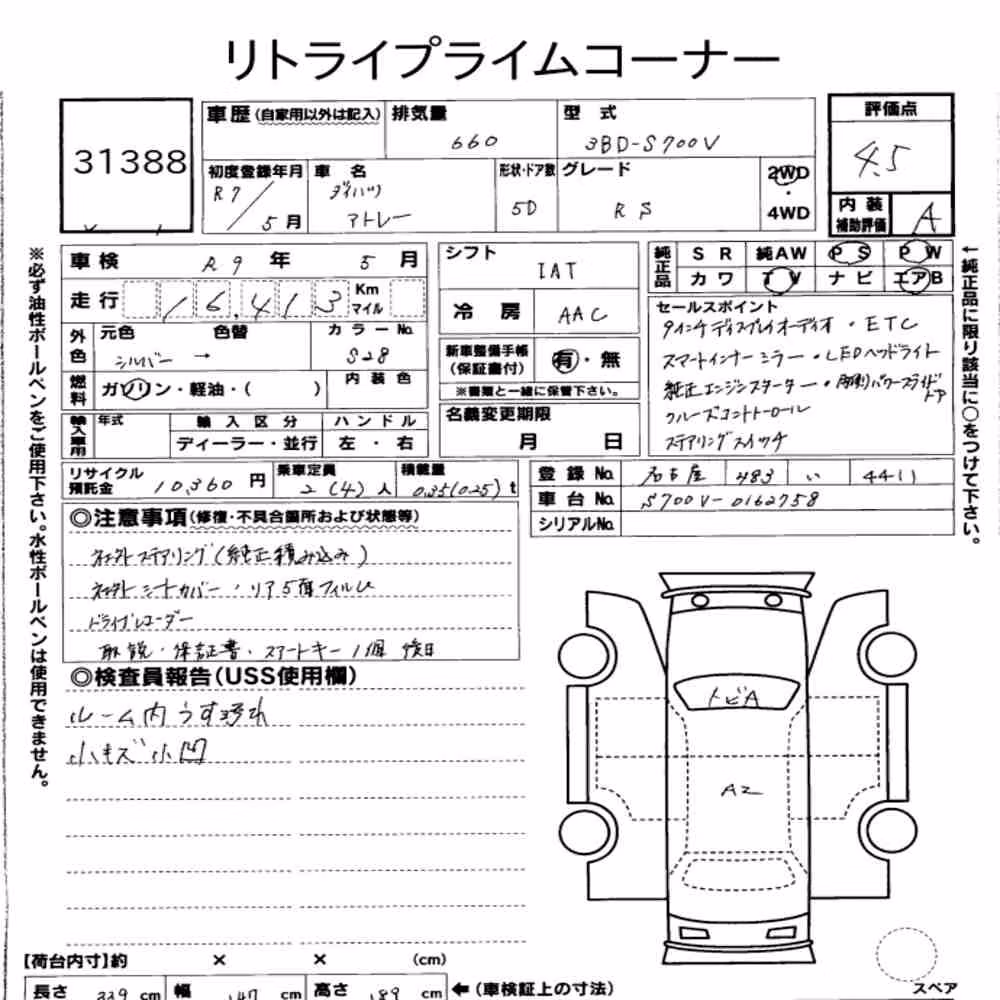 リトライプライムコーナー
31388
車歴(自家用以外は記入)
排気量
660
型 式
3BD-S700V
評価点
4.5
初度登録年月
R7/5月
車 名
ダイハツ
アトレー
形状・ドア数
5D
グレード
RS
2WD
・
4WD
内 装
補助評価
A
※必ず油性ボールペンをご使用下さい。水性ボールペンは使用できません。
車 検 R9 年 5 月
走行 16,413 Km マイル
外色
元色
色替
シルバー →
カラーNo.
S28
燃料
ガソリン・軽油・( )
内 装 色
輸入車用
年式
輸 入 区 分
ディーラー・並行
ハ ン ド ル
左 ・ 右
シフト
IAT
冷 房
AAC
新車整備手帳
(保証書付)
有・無
※書類と一緒に保管下さい。
名義変更期限
月 日
純正品
S R 純AW P S P W
カ ワ T V ナ ビ エアB
セールスポイント
9インチディスプレイオーディオ・ETC
スマートインナーミラー・LEDヘッドライト
純正エンジンスターター・両側パワースライドドア
クルーズコントロール
ステアリングスイッチ
←純正品に限り該当に○をつけて下さい。
リサイクル
預託金
10,360 円
乗車定員
2(4)人
積載量
0.35(0.25)t
登録 No. 名古屋 483 い 4411
車台 No. S700V-0162758
シリアルNo.
◎注意事項(修復・不具合箇所および状態等)
社外ステアリング(純正積み込み)
社外シートカバー・リア5面フィルム
ドライブレコーダー
取説・保証書・スマートキー1個 後日
◎検査員報告(USS使用欄)
ルーム内うす汚れ
小キズ小凹
トビA
A2
【荷台内寸】約 × × (cm)
長さ 339 cm
幅 147 cm
高さ 189 cm
←(車検証上の寸法)
スペア